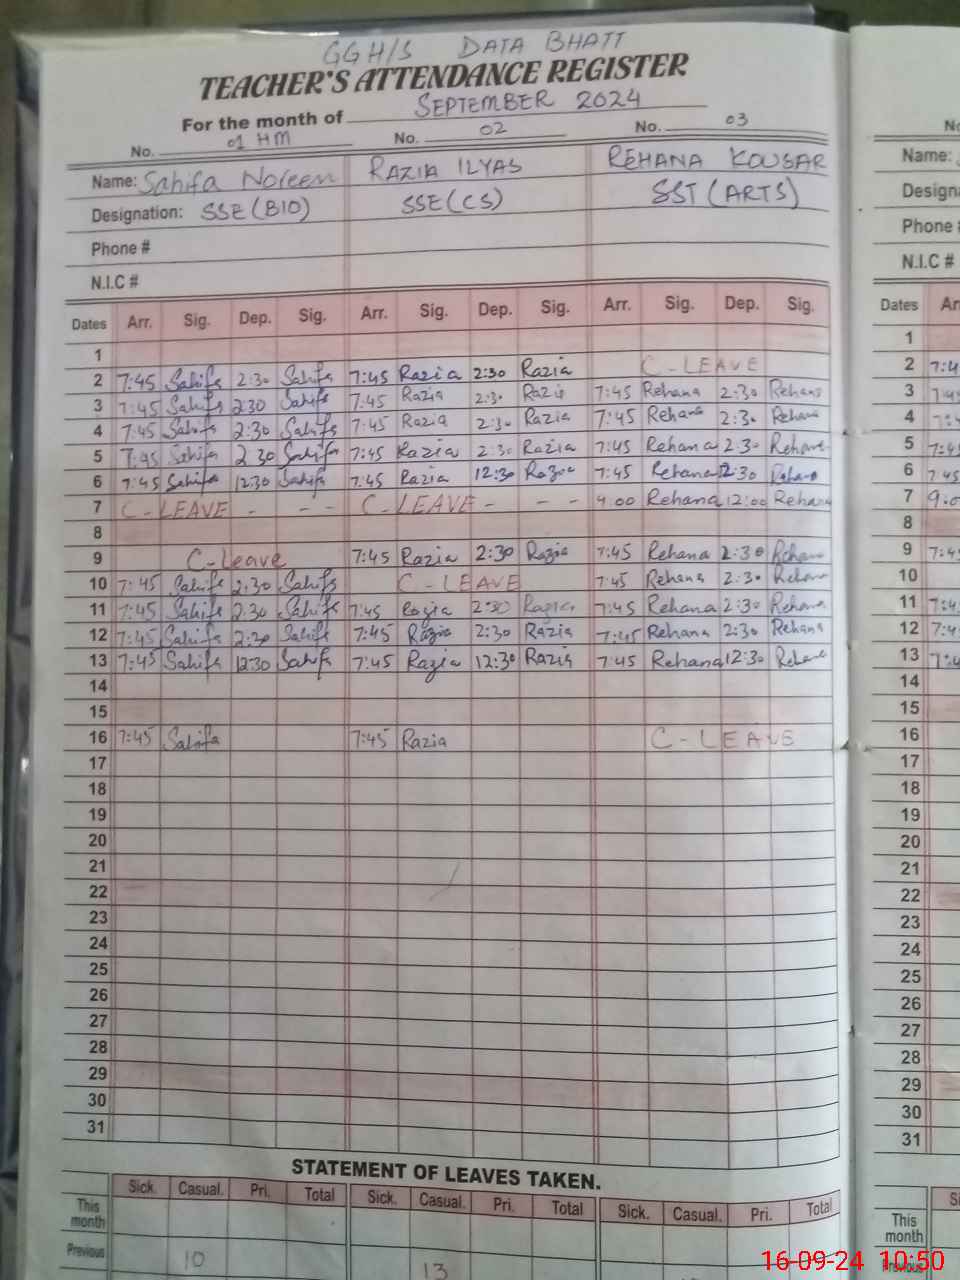 GGH/S DATA BHATT
TEACHER'S ATTENDANCE REGISTER
For the month of SEPTEMBER 2024
No. 01 HM No. 02 No. 03
Name: Sahifa Noreen RAZIA ILYAS REHANA KOUSAR
Designation: SSE (BIO) SSE (CS) SST (ARTS)
Phone #
N.I.C #
Dates Arr. Sig. Dep. Sig. Arr. Sig. Dep. Sig. Arr. Sig. Dep. Sig.
1
2 7:45 Sahifa 2:30 Sahifa 7:45 Razia 2:30 Razia C-LEAVE
3 7:45 Sahifa 2:30 Sahifa 7:45 Razia 2:3. Razia 7:45 Rehana 2:30 Rehana
4 7:45 Sahifa 2:30 Sahifa 7:45 Razia 2:30 Razia 7:45 Rehana 2:30 Rehana
5 7:45 Sahifa 2 30 Sahifa 7:45 Razia 2:30 Razia 7:45 Rehana 2:30 Rehana
6 7:45 Sahifa 12:30 Sahifa 7:45 Razia 12:30 Razia 7:45 Rehana 12:30 Rehana
7 C-LEAVE - - - C-LEAVE - - - 9.00 Rehana 12:00 Rehana
8
9 C-Leave 7:45 Razia 2:30 Razia 7:45 Rehana 2:30 Rehana
10 7:45 Sahifa 2:30 Sahifa C-LEAVE 7:45 Rehana 2:30 Rehana
11 7:45 Sahifa 2:30 Sahifa 7:45 Razia 2:30 Razia 7:45 Rehana 2:30 Rehana
12 7:45 Sahifa 2:30 Sahifa 7:45 Razia 2:30 Razia 7:45 Rehana 2:30 Rehana
13 7:45 Sahifa 12:30 Sahifa 7:45 Razia 12:30 Razia 7:45 Rehana 12:30 Rehana
14
15
16 7:45 Sahifa 7:45 Razia C-LEAVE
17
18
19
20
21
22
23
24
25
26
27
28
29
30
31
STATEMENT OF LEAVES TAKEN.
Sick. Casual. Pri. Total Sick. Casual. Pri. Total Sick. Casual. Pri. Total
This month
Previous 10 13
Name:
Phone
N.I.C #
Dates
1
2
3
4
5
6
7 9.0
8
9
10
11
12
13
14
15
16
17
18
19
20
21
22
23
24
25
26
27
28
29
30
31
This month
16-09-24 10:50